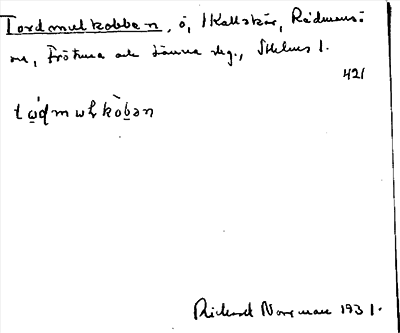 Tordmulkobben, ö, i Kallskär, Rådmans-
ö, Frötuna och Länna skg., Sthlms l.
421
Rickard Norrman 1931.